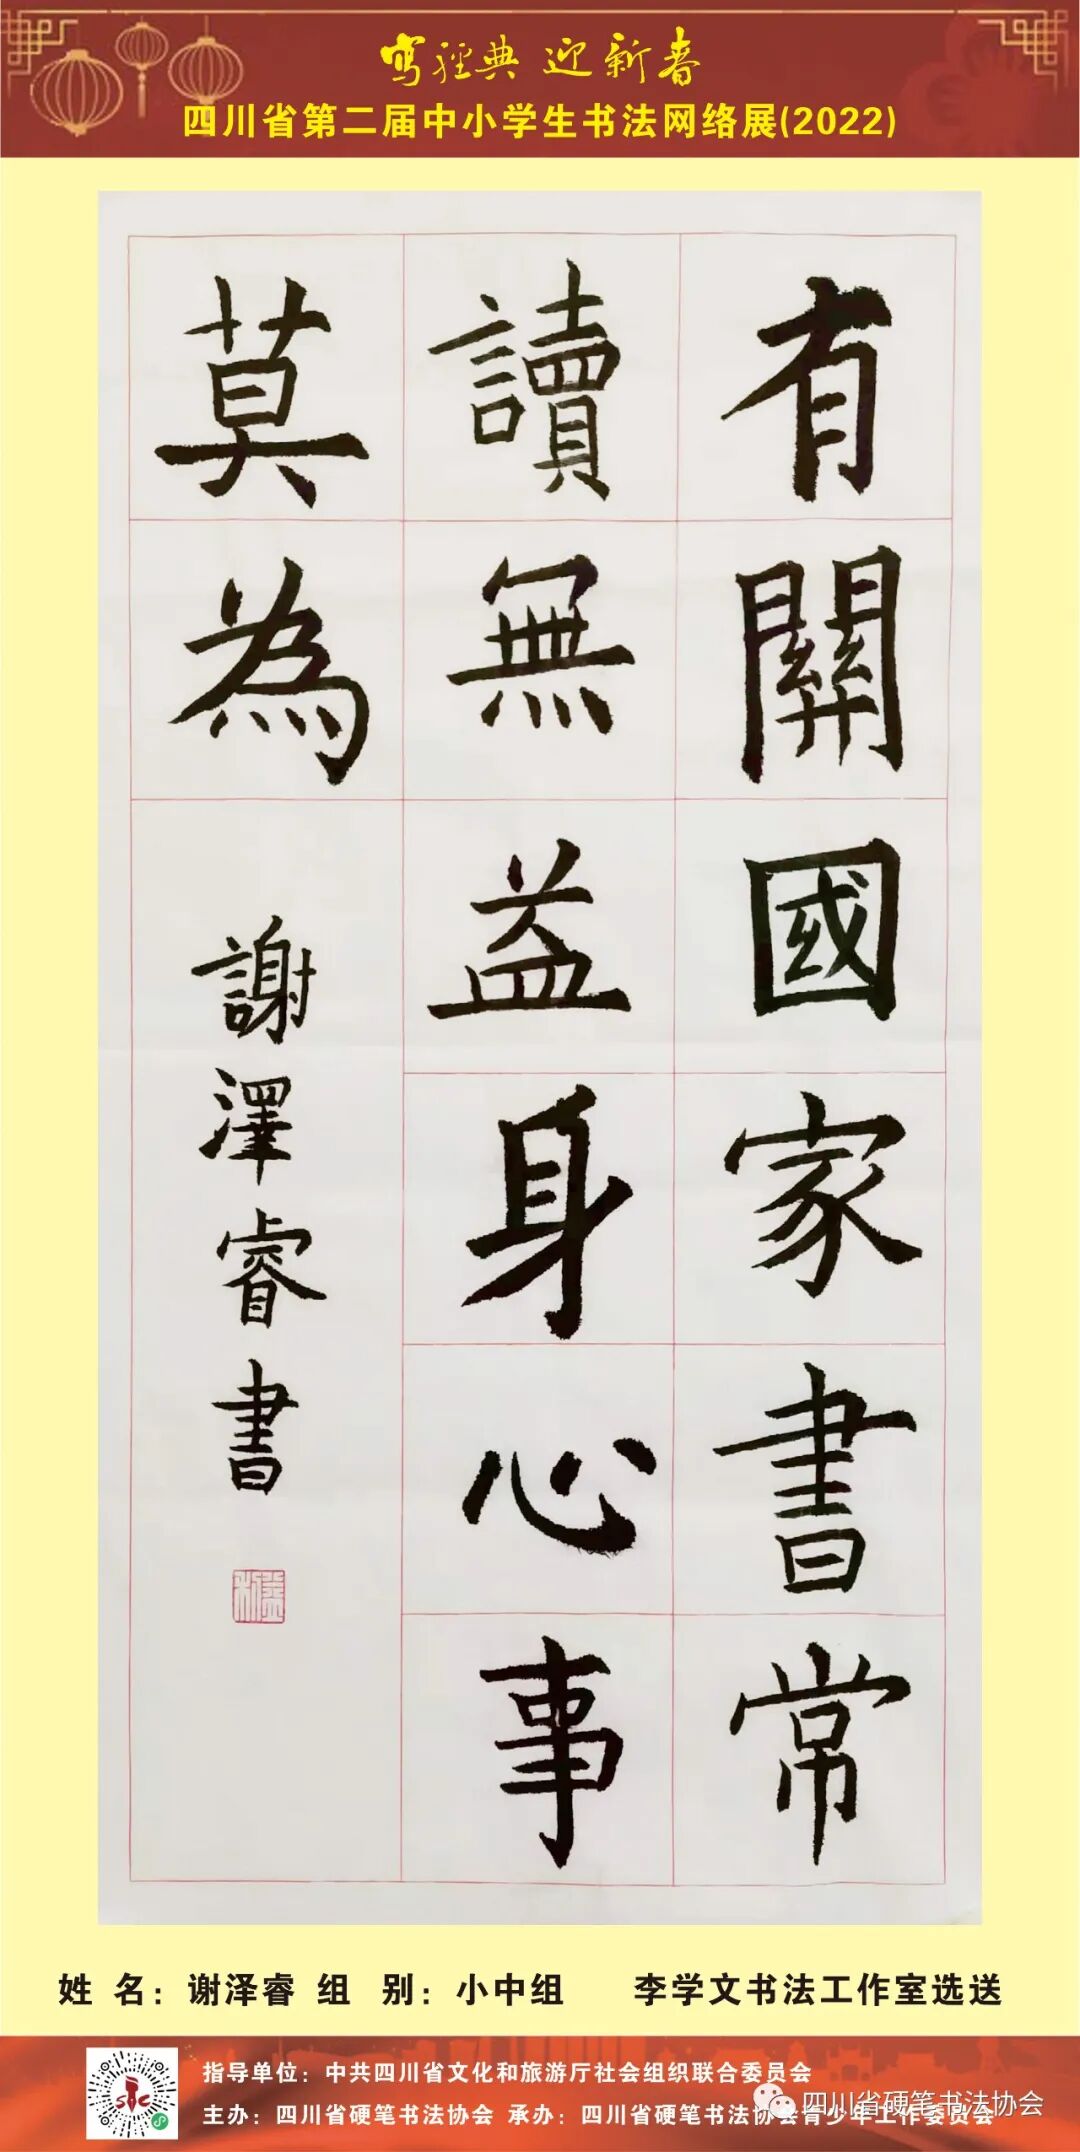 写经典 迎新春
四川省第二届中小学生书法网络展(2022)
有關國家書常
讀無益身心事
莫為
謝澤睿書
姓 名：谢泽睿 组 别：小中组 李学文书法工作室选送
指导单位：中共四川省文化和旅游厅社会组织联合委员会
主办：四川省硬笔书法协会 承办：四川省硬笔书法协会青少年工作委员会
四川省硬笔书法协会